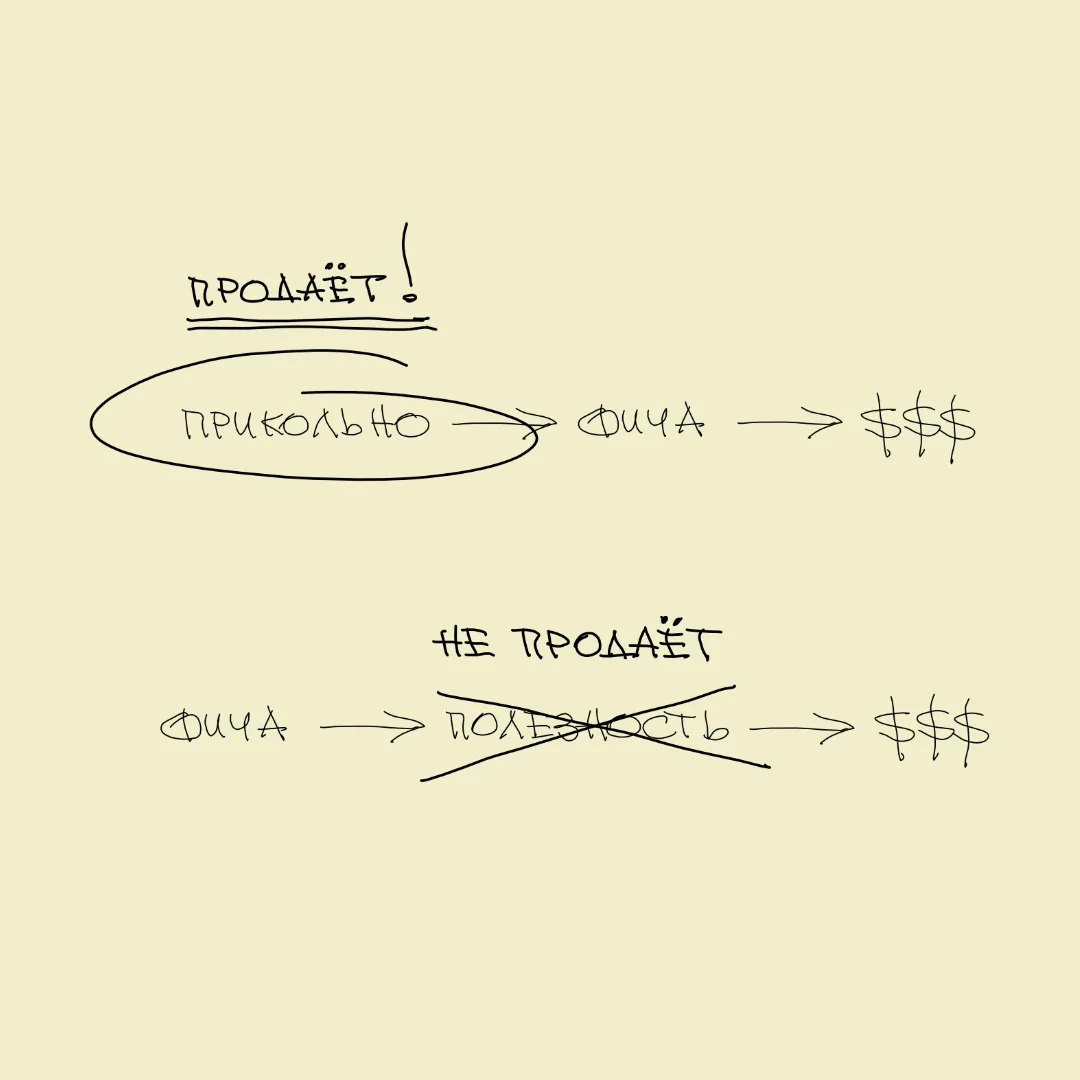 ПРОДАЁТ!
ПРИКОЛЬНО → ФИЧА → $$$
НЕ ПРОДАЁТ
ФИЧА → ПОЛЕЗНОСТЬ → $$$